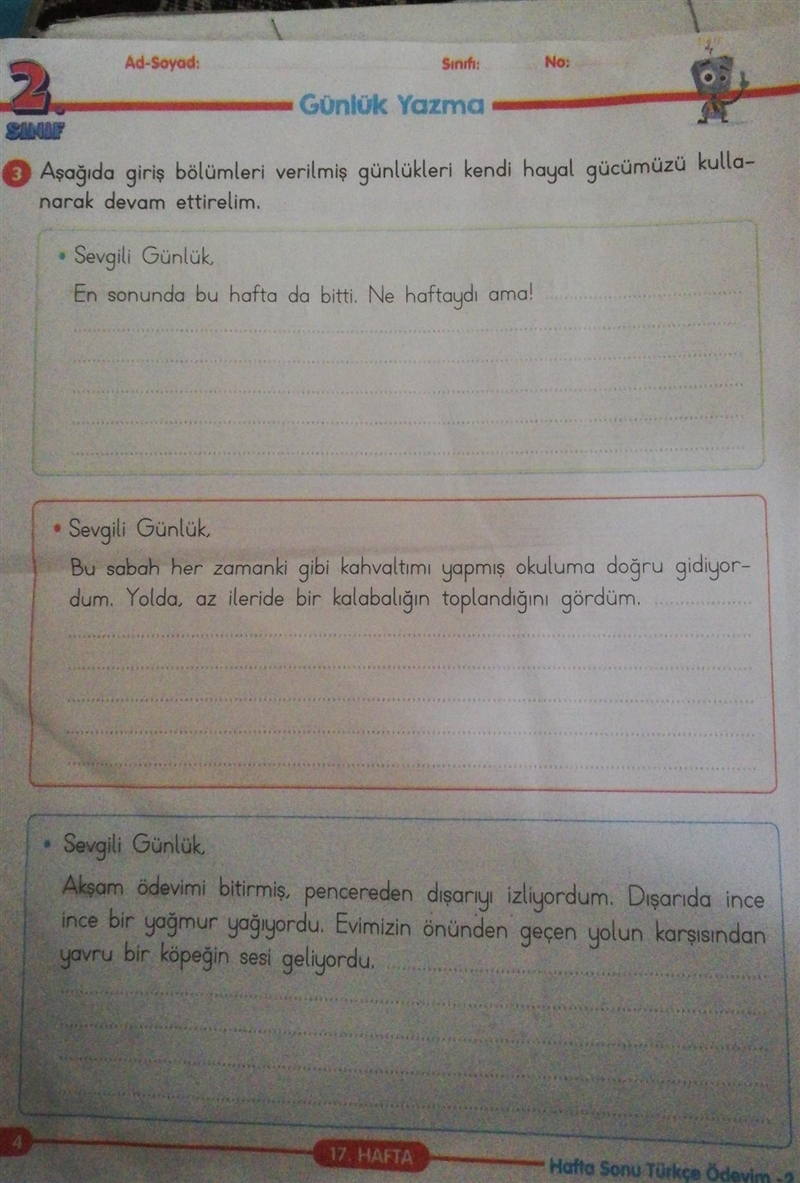 Ad-Soyad: Sınıfı: No:
2.
SINIF
Günlük Yazma
3 Aşağıda giriş bölümleri verilmiş günlükleri kendi hayal gücümüzü kulla-
narak devam ettirelim.
• Sevgili Günlük,
En sonunda bu hafta da bitti. Ne haftaydı ama!
• Sevgili Günlük,
Bu sabah her zamanki gibi kahvaltımı yapmış okuluma doğru gidiyor-
dum. Yolda, az ileride bir kalabalığın toplandığını gördüm.
• Sevgili Günlük,
Akşam ödevimi bitirmiş, pencereden dışarıyı izliyordum. Dışarıda ince
ince bir yağmur yağıyordu. Evimizin önünden geçen yolun karşısından
yavru bir köpeğin sesi geliyordu.
4
17. HAFTA
Hafta Sonu Türkçe Ödevim -2